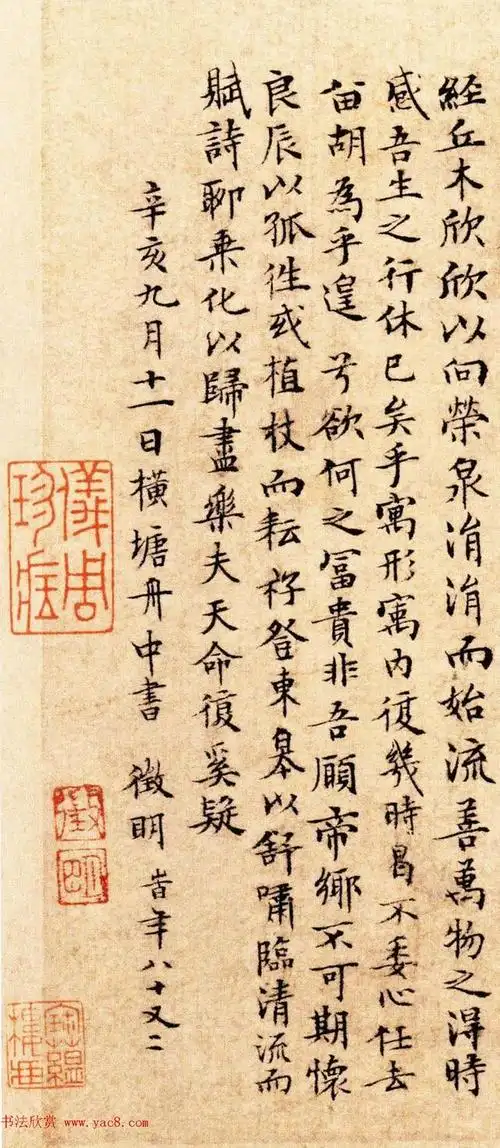 經丘木欣欣以向榮泉涓涓而始流善萬物之得時
感吾生之行休已矣乎寓形寓內復幾時曷不委心任去
留胡為乎遑兮欲何之冨貴非吾願帝鄉不可期懷
良辰以孤往或植杖而耘耔登東皋以舒嘯臨清流而
賦詩聊乘化以歸盡樂夫天命復奚疑
辛亥九月十一日橫塘舟中書 徵明 旹年八十又二
儀周
珍藏
徵
明
书法欣赏 www.yac8.com